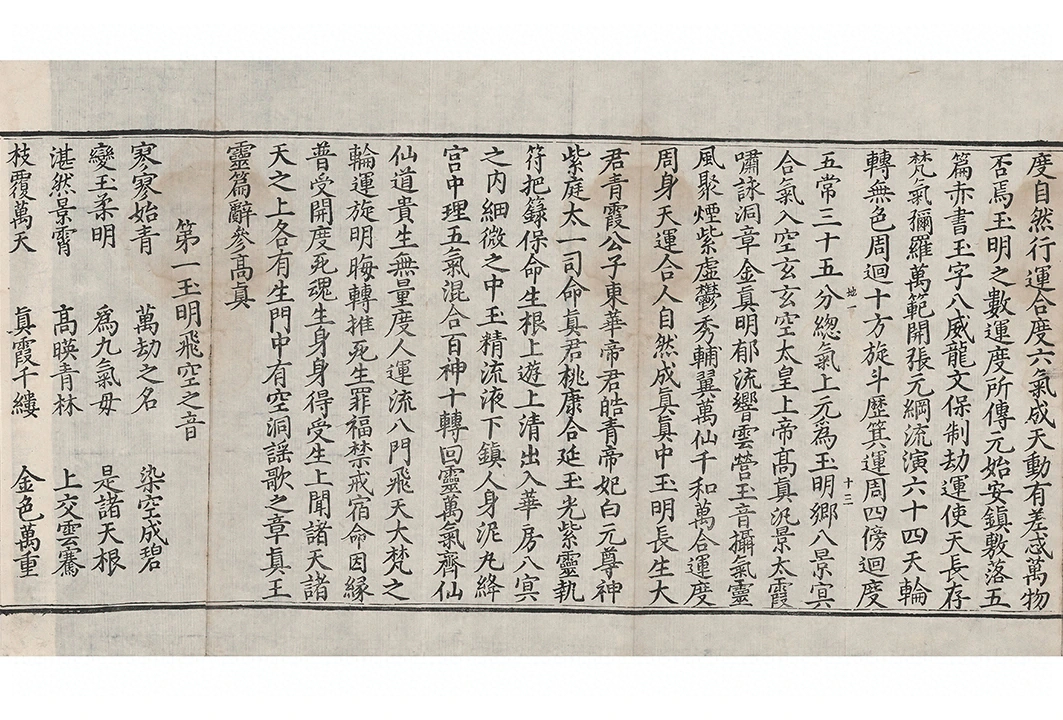 度自然行運合度六氣成天動有差惑萬物
否焉玉明之數運度所傳元始安鎮敷落五
篇赤書玉字八威龍文保制劫運使天長存
梵氣彌羅萬範開張元綱流演六十四天輪
轉無色周迴十方旋斗歷箕運周四傍迴度
地 十二
五常三十五分總氣上元爲玉明鄉八景宾
合氣入空玄玄空太皇上帝高真汎景太霞
嘯詠洞章金真明郁流響雲營玉音攝氣靈
風聚煙紫虛鬱秀輔翼萬仙千和萬合運度
周身天運合人自然成真真中玉明長生大
君青霞公子東華帝君皓青帝妃白元尊神
紫庭太一司命真君桃康合延玉光紫靈執
符把籙保命生根上遊上清出入華房八冥
之内細微之中玉精流液下鎮人身泥丸絳
宮中理五氣混合百神十轉回靈萬氣齊仙
仙道貴生無量度人運流八門飛天大梵之
輪運旋明晦轉推死生罪福禁戒宿命因緣
普受開度死魂生身身得受生上聞諸天諸
天之上各有生門中有空洞謠歌之章真王
靈篇辭參高真
第一玉明飛空之音
寥寥始青 萬劫之名 染空成碧
變玉柔明 爲九氣母 是諸天根
湛然景霄 高暎青林 上交雲騫
枝覆萬天 真霞千縷 金色萬重